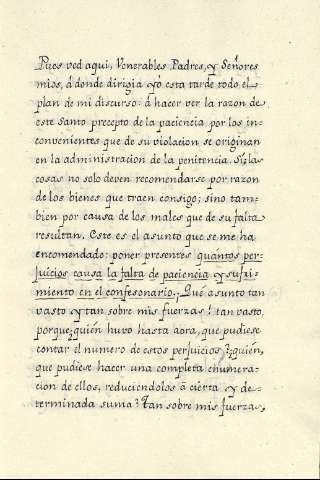 Pues ved aqui, Venerables Padres, y Señores
mios, á donde dirigia yo esta tarde todo el
plan de mi discurso: á hacer ver la razon de
este santo precepto de la paciencia por los in-
convenientes que de su violacion se originan
en la administracion de la penitencia. Si; las
cosas no solo deven recomendarse por razon
de los bienes que traen consigo; sino tam-
bien por causa de los males que de su falta
resultan. Este es el asunto que se me ha
encomendado: poner presentes quantos per-
juicios causa la falta de paciencia y sufri-
miento en el confesonario. Qué asunto tan
vasto y tan sobre mis fuerzas! tan vasto,
porque ¿quién huvo hasta aora, que pudiese
contar el numero de estos perjuicios? ¿quién,
que pudiese hacer una completa enumera-
cion de ellos, reduciendolos á cierta y de-
terminada suma? Tan sobre mis fuerzas,